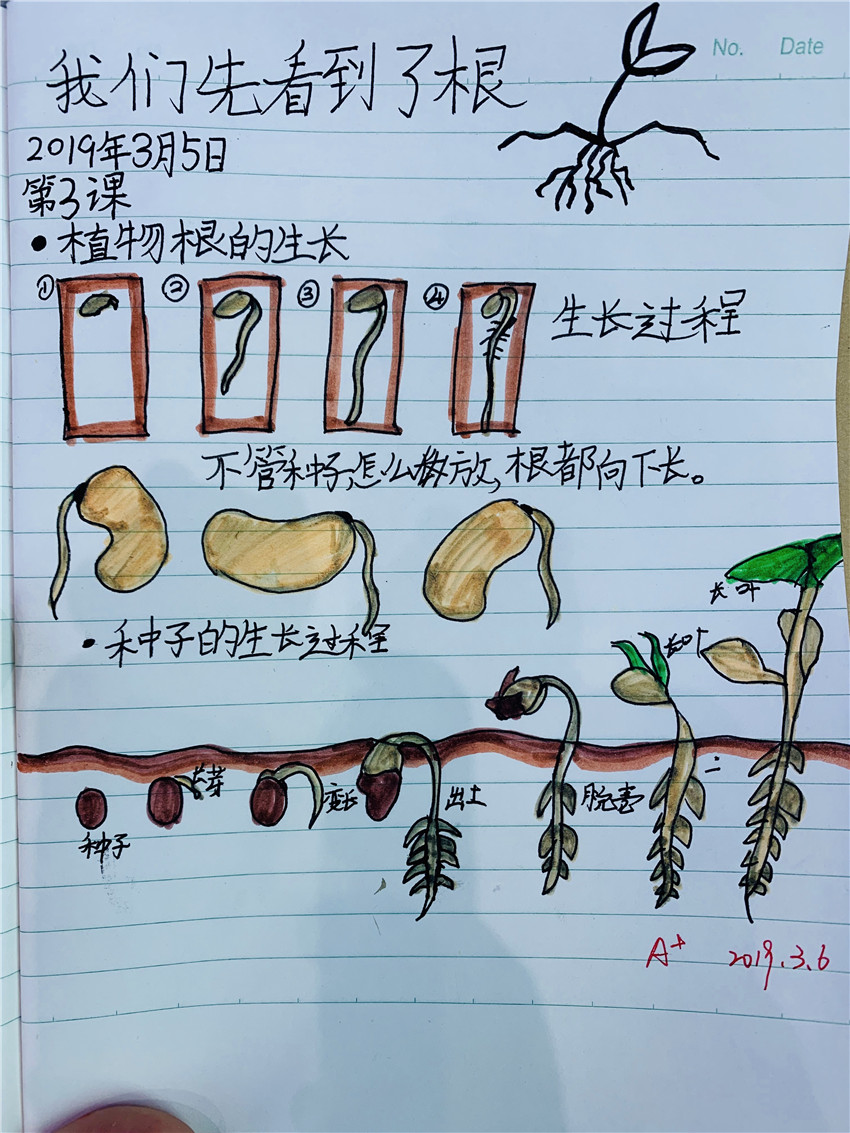 No. Date
我们先看到了根
2019年3月5日
第3课
• 植物根的生长
① ② ③ ④ 生长过程
不管种子怎么摆放,根都向下长。
• 种子的生长过程
长叶
长叶
种子
长芽
变长
出土
脱壳
A+ 2019.3.6